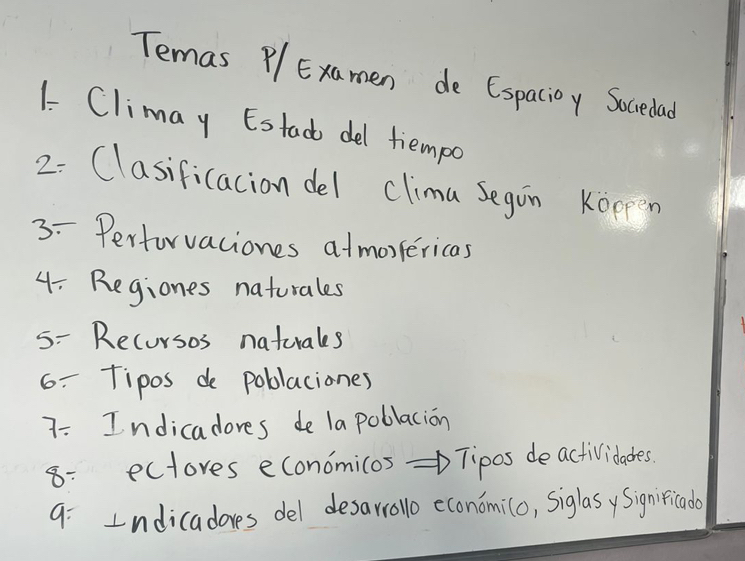 Temas P/ Examen de Espacio y Sociedad
1- Clima y Estado del tiempo
2- Clasificacion del clima Según Köppen
3- Perturvaciones atmosféricas
4- Regiones naturales
5- Recursos naturales
6- Tipos de poblaciones
7- Indicadores de la población
8- ectores económicos ⇒ Tipos de actividades.
9- Indicadores del desarrollo económico, Siglas y Significado